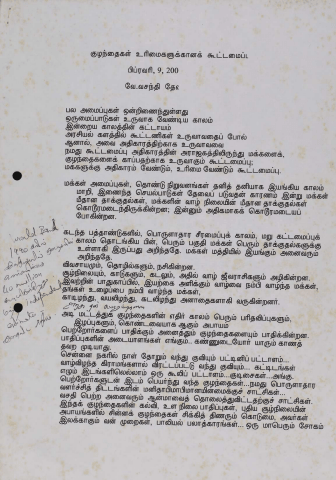 குழந்தைகள் உரிமைகளுக்கானக் கூட்டமைப்பு
பிப்ரவரி, 9, 200
வே.வசந்தி தே
பல அமைப்புகள் ஒன்றிணைந்துள்ளது
ஒருமைப்பாடுகள் உருவாக வேண்டிய காலம்
இன்றைய காலத்தின் கட்டாயம்
அரசியல் களத்தில் கூட்டணிகள் உருவாவதைப் போல்
ஆனால், அவை அதிகாரத்திற்காக உருவாவவை
நமது கூட்டமைப்பு அதிகாரத்தின் அராஜகத்திலிருந்து மக்களைக்,
குழந்தைகளைக் காப்பதற்காக உருவாகும் கூட்டமைப்பு;
மக்களுக்கு அதிகாரம் வேண்டும், உரிமை வேண்டும் கூட்டமைப்பு.
மக்கள் அமைப்புகள், தொண்டு நிறுவனங்கள் தனித் தனியாக இயங்கிய காலம்
மாறி, இணைந்து செயல்பாடுகள் தேவைப் படுவதன் காரணம் இன்று மக்கள்
மீதான தாக்குதல்கள், மக்களின் வாழ் நிலையின் மீதான தாக்குதல்கள்
கொடூரமடைந்திருக்கின்றன; இன்னும் அதிகமாகக் கொடூரமடையப்
போகின்றன.
கடந்த பத்தாண்டுகளில், பொருளாதார சீரமைப்புக் காலம், மறு கட்டமைப்புக்
காலம் தொடங்கிய பின், பெரும் பகுதி மக்கள் பெரும் தாக்குதல்களுக்கு
உள்ளாகி இருப்பது அறிந்ததே. மக்கள் மத்தியில் இயங்கும் அனைவரும்
அறிந்ததே.
விவசாயமும், தொழில்களும், நசிகின்றன.
சூழ்நிலையும், காடுகளும், கடலும், அதில் வாழ் ஜீவராசிகளும் அழிகின்றன.
இவற்றின் பாதுகாப்பில், இயற்கை அளிக்கும் வாழ்வை நம்பி வாழ்ந்த மக்கள்,
தங்கள் உழைப்பை நம்பி வாழ்ந்த மக்கள்,
காடிழந்து, வயலிழந்து, கடலிழந்து அனாதைகளாகி வருகின்றனர்.
அடி மட்டத்துக் குழந்தைகளின் எதிர் காலம் பெரும் பரிதவிப்புகளும்,
இழப்புகளும், கொண்டவையாக ஆகும் அபாயம்
பெற்றோர்களைப் பாதிக்கும் அனைத்தும் குழந்தைகளையும் பாதிக்கின்றன.
பாதிப்புகளின் அடையாளங்கள் எங்கும். கண்ணுடையோர் யாரும் காணத்
தவற முடியாது.
சென்னை நகரில் நாள் தோறும் வந்து குவியும் பட்டினிப் பட்டாளம்...
வாழ்விழந்த கிராமங்களால் விரட்டப்பட்டு வந்து குவியும்... கட்டிடங்கள்
எழும் இடங்களிலெல்லாம் ஒரு கூலிப் பட்டாளம்...குடிசைகள்...அங்கு.
பெற்றோர்களுடன் இடம் பெயர்ந்து வந்த குழந்தைகள்...நமது பொருளாதார
வளர்ச்சித் திட்டங்களின் மனிதாபிமானமின்மைக்குச் சாட்சிகள்...
வசதி பெற்ற அனைவரும் ஆன்மாவைத் தொலைத்துவிட்டதற்குச் சாட்சிகள்.
இந்தக் குழந்தைகளின் கல்வி, உள நிலை பாதிப்புகள், புதிய சூழ்நிலையின்
அபாயங்களில் சின்னக் குழந்தைகள் சிக்கித் திணரும் கொடுமை, அவர்கள்
இலக்காகும் வன் முறைகள், பாலியல் பலாத்காரங்கள்... ஒரு மாபெரும் சோகம்